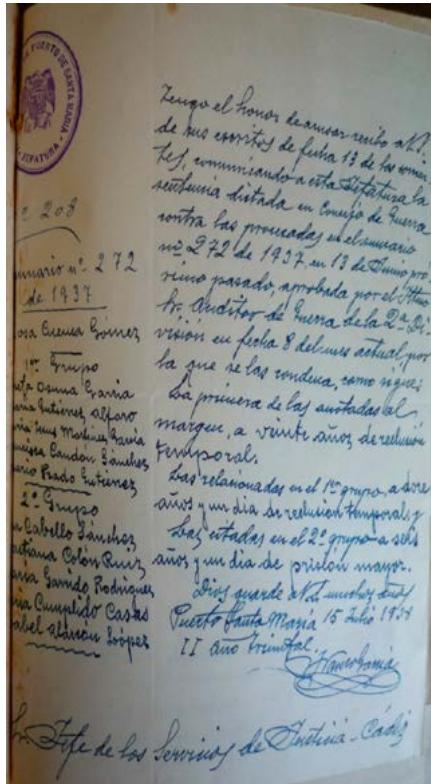 PUERTO DE SANTA MARIA
JEFATURA
nº 208
Sumario nº 272
de 1937
Rosa Cuenca Gómez
1er Grupo
Osuna García
María Gutiérrez Alfaro
María Jesús Martínez García
Francisca Candón Sánchez
Rosario Prado Gutiérrez
2º Grupo
Cabello Sánchez
Sebastiana Colón Ruiz
María Garrido Rodríguez
María Cumplido Casas
Isabel Alarcón López
Tengo el honor de acusar recibo a V.S.
de sus escritos de fecha 13 de los corrien
tes, comunicando a esta Jefatura la
sentencia dictada en Consejo de Guerra
contra las procesadas en el sumario
nº 272 de 1937, en 13 de Junio pró
ximo pasado, aprobada por el Iltmo
Sr. Auditor de Guerra de la 2ª Di
visión en fecha 8 del mes actual, por
la que se las condena, como sigue:
La primera de las anotadas al
margen, a veinte años de reclusión
temporal.
Las relacionadas en el 1er grupo, a doce
años y un día de reclusión temporal, y
Las citadas en el 2º grupo a seis
años y un día de prisión mayor.
Dios guarde a V.S. muchos años
Puerto Santa María 15 Julio 1938
II Año Triunfal.
Sr. Jefe de los Servicios de Justicia - Cádiz